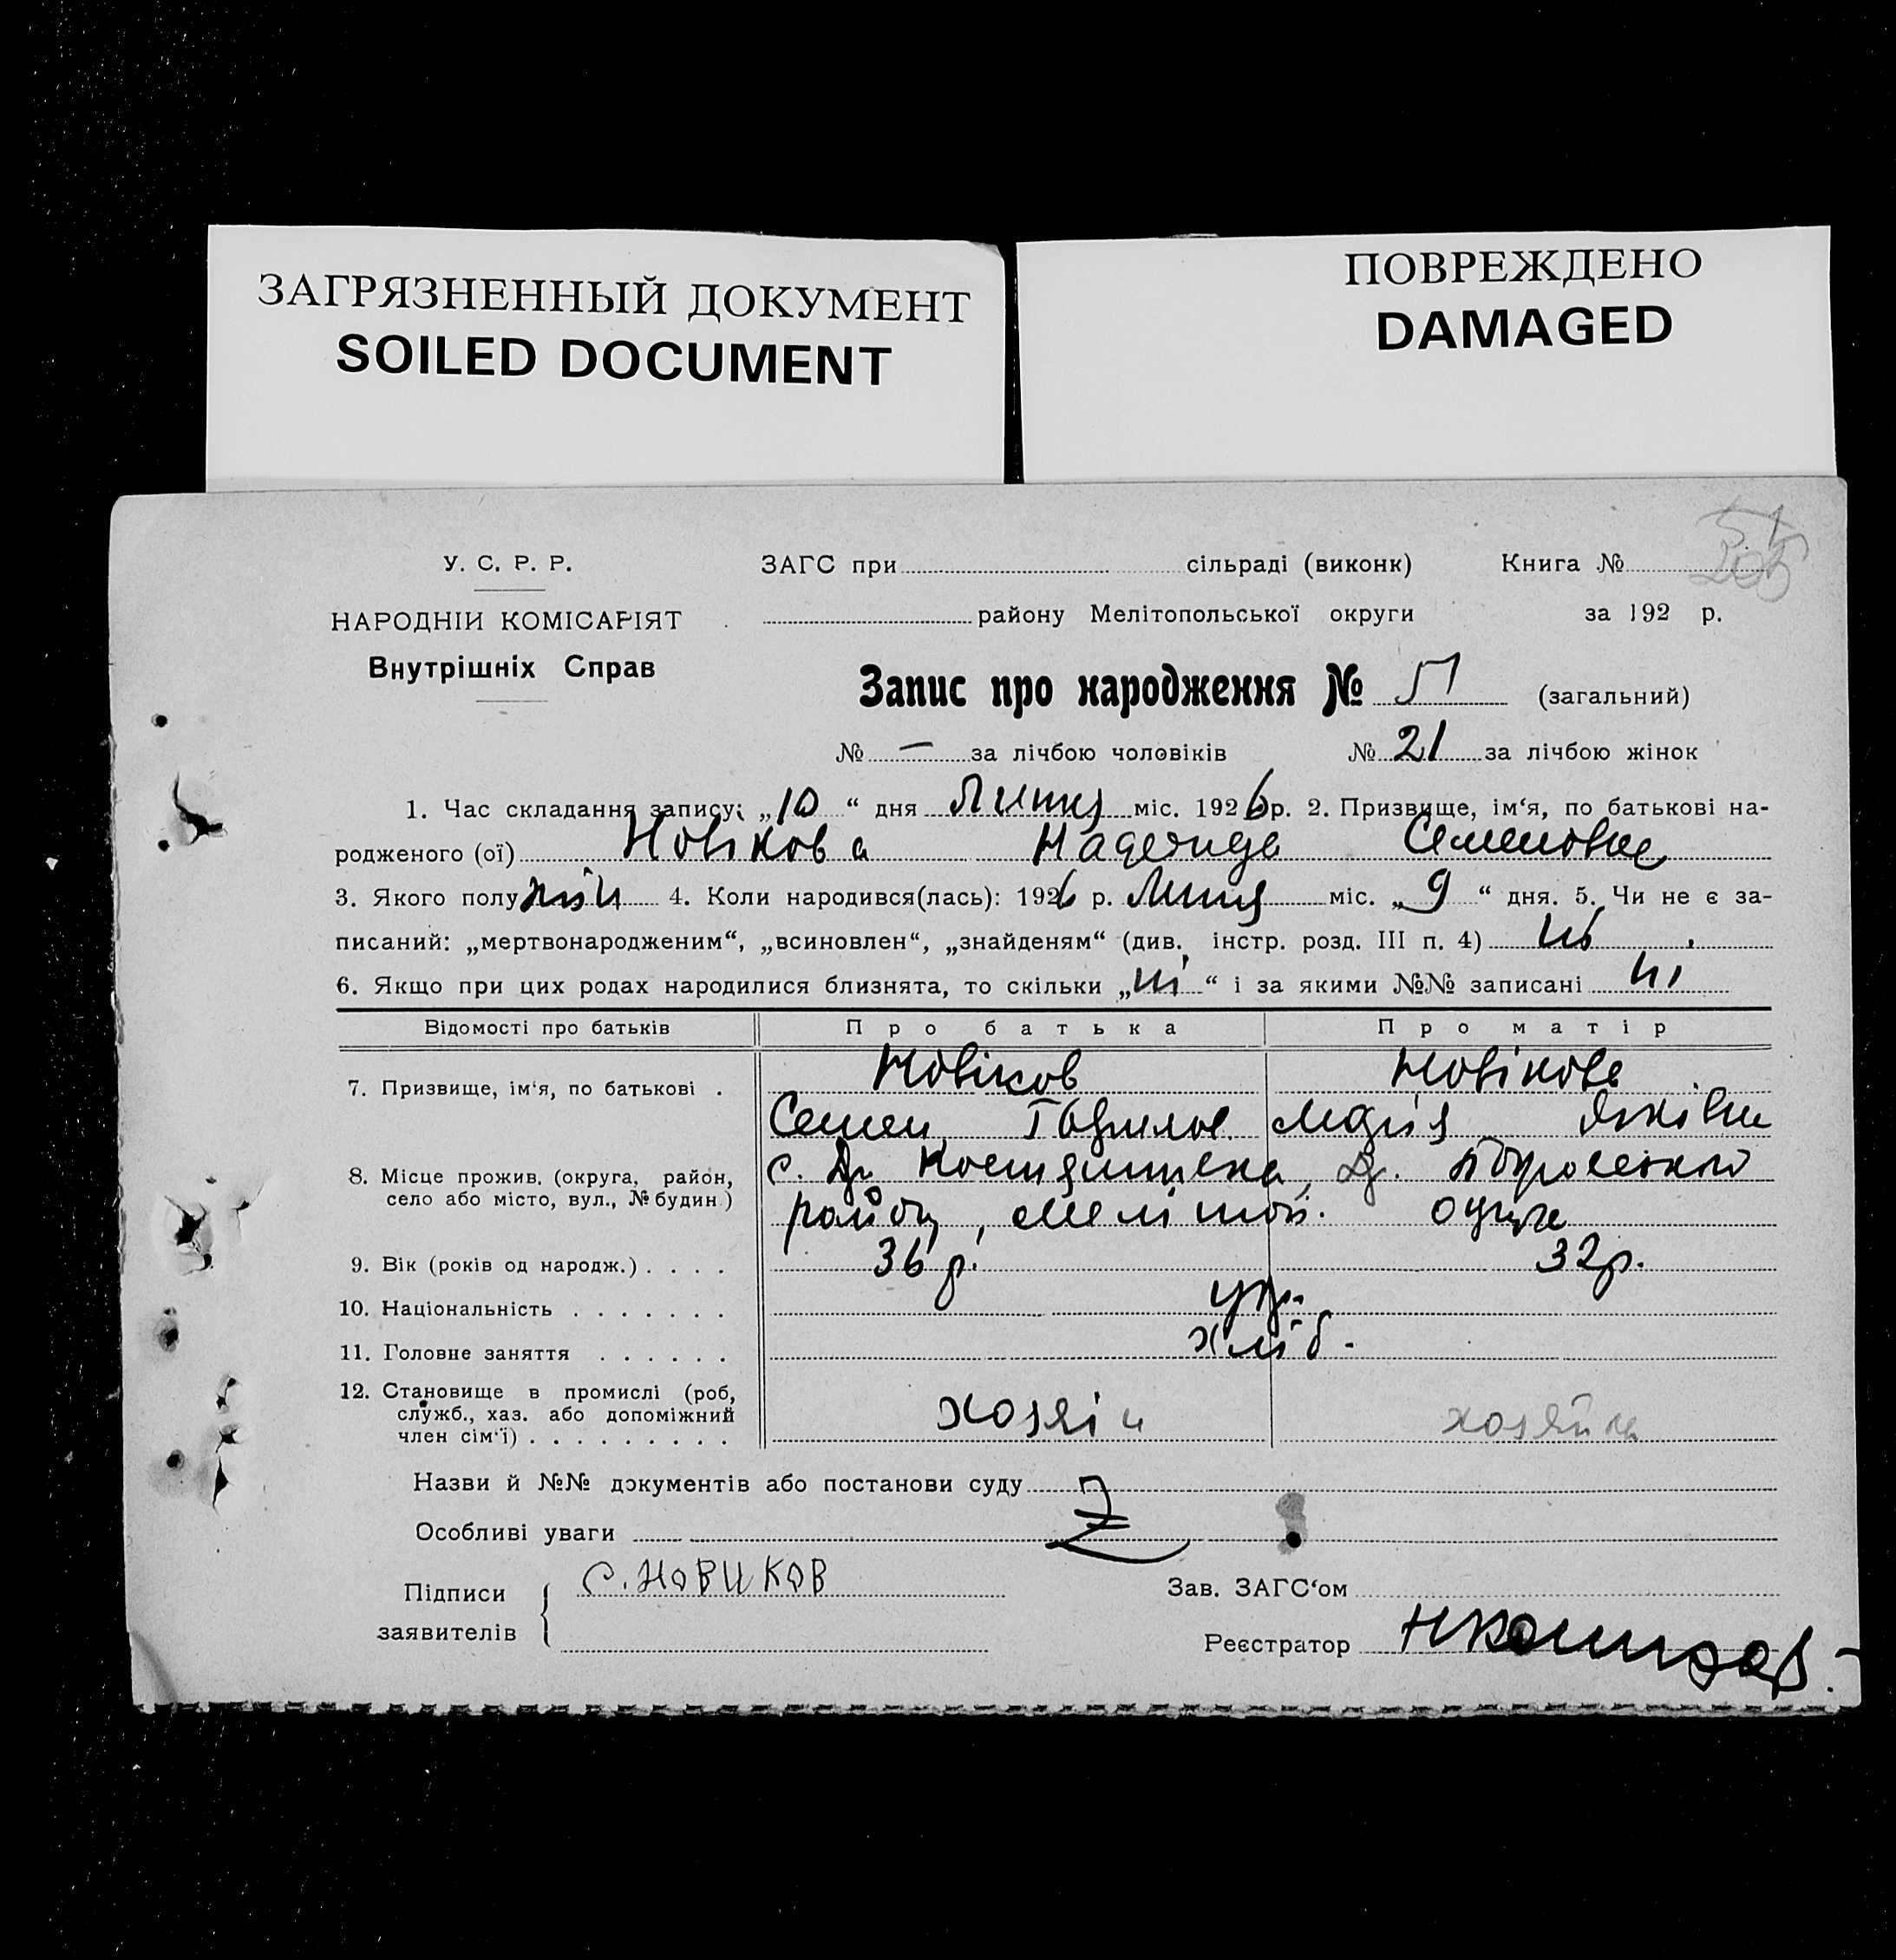 ЗАГРЯЗНЕННЫЙ ДОКУМЕНТ
SOILED DOCUMENT
ПОВРЕЖДЕНО
DAMAGED
У. С. Р. Р.
ЗАГС при сільраді (виконк) Книга №
НАРОДНІИ КОМІСАРІЯТ
району Мелітопольської округи за 192 р.
Внутрішніх Справ
Запис про народження № 51 (загальний)
№ — за лічбою чоловіків № 21 за лічбою жінок
1. Час складання запису: „10“ дня Липня міс. 1926 р. 2. Призвище, ім‘я, по батькові на-
родженого (ої) Новікова Надежда Семеновна
3. Якого полу жін 4. Коли народився(лась): 1926 р. Липня міс. „9“ дня. 5. Чи не є за-
писаний: „мертвонародженим“, „всиновлен“, „знайденям“ (див. інстр. розд. III п. 4) ні
6. Якщо при цих родах народилися близнята, то скільки „ні“ і за якими №№ записані ні
Відомості про батьків Про батька Про матір
7. Призвище, ім‘я, по батькові . Новіков Новікова
Семен Марія Яківна
8. Місце прожив. (округа, район,
село або місто, вул., № будин.)
с.
району, Меліт. округи
9. Вік (років од народж.) . . . . 36 р. 32 р.
10. Національність . . . . . . . укр.
11. Головне заняття . . . . . . хліб.
12. Становище в промислі (роб,
служб., хаз. або допоміжний
член сім‘ї) . . . . . . . . . хозяін хозяйка
Назви й №№ документів або постанови суду
Особливі уваги
Підписи
заявителів
С. НОВИКОВ
Зав. ЗАГС‘ом
Реєстратор